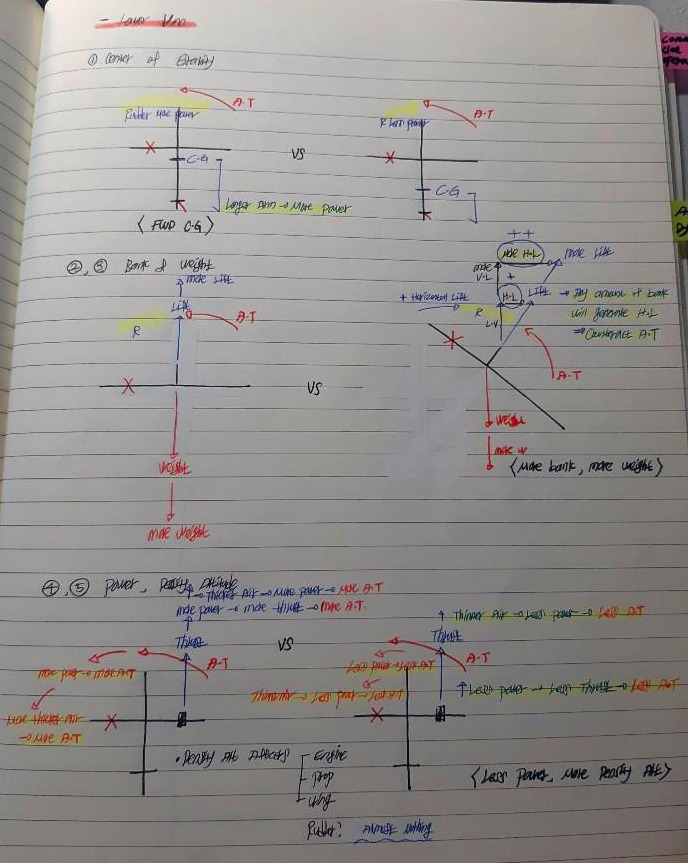 - Lower Vmc
① Center of Gravity
A.T
Rudder More power
C-G
Longer Arm → More Power
< FWD C.G >
VS
A.T
R Less power
C-G
②, ③ Bank & Weight
more Lift
Lift
A.T
R
weight
more weight
VS
++
More H-L
more Lift
more V-L
+
+ Horizontal Lift
H-L
Lift → Any amount of bank
will generate H-L
⇒ Counteract A.T
R
L-V
A.T
weight
more w
< More bank, more weight >
④, ⑤ Power, Density Altitude
→ Thicker Air → More power → More A.T
more power → more thrust → more A.T.
Thrust
A-T
more power → more A.T
more thicker Air
→ More A.T
VS
↑ Thinner Air → Less power → Less A.T
Thrust
A-T
Less power → Less A.T
Thinner Air → Less power → Less A.T
↑ Less power → Less Thrust → Less A.T
• Density Alt Affects
Engine
Prop
Wing
Rudder? Almost nothing
< Less Power, More Density Alt >